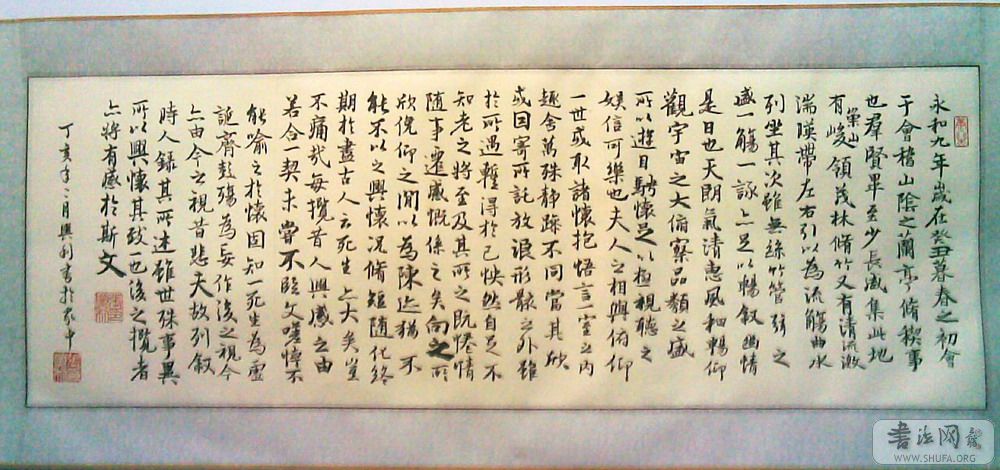 永和九年歲在癸丑暮春之初會
于會稽山陰之蘭亭脩稧事
也羣賢畢至少長咸集此地
有崇山峻領茂林脩竹又有清流激
湍暎帶左右引以為流觴曲水
列坐其次雖無絲竹管弦之
盛一觴一詠亦足以暢敘幽情
是日也天朗氣清惠風和暢仰
觀宇宙之大俯察品類之盛
所以遊目騁懷足以極視聽之
娛信可樂也夫人之相與俯仰
一世或取諸懷抱悟言一室之內
趣舍萬殊靜躁不同當其欣
或因寄所託放浪形骸之外雖
於所遇蹔得於己怏然自足不
知老之將至及其所之既惓情
隨事遷感慨係之矣向之所
欣俛仰之閒以為陳迹猶不
能不以之興懷況脩短隨化終
期於盡古人云死生亦大矣豈
不痛哉每攬昔人興感之由
若合一契未嘗不臨文嗟悼不
能喻之於懷固知一死生為虛
誕齊彭殤為妄作後之視今
亦由今之視昔悲夫故列敘
時人錄其所述雖世殊事異
所以興懷其致一也後之攬者
亦將有感於斯文
丁亥年二月興利書於家中
书法网
WWW.SHUFA.ORG